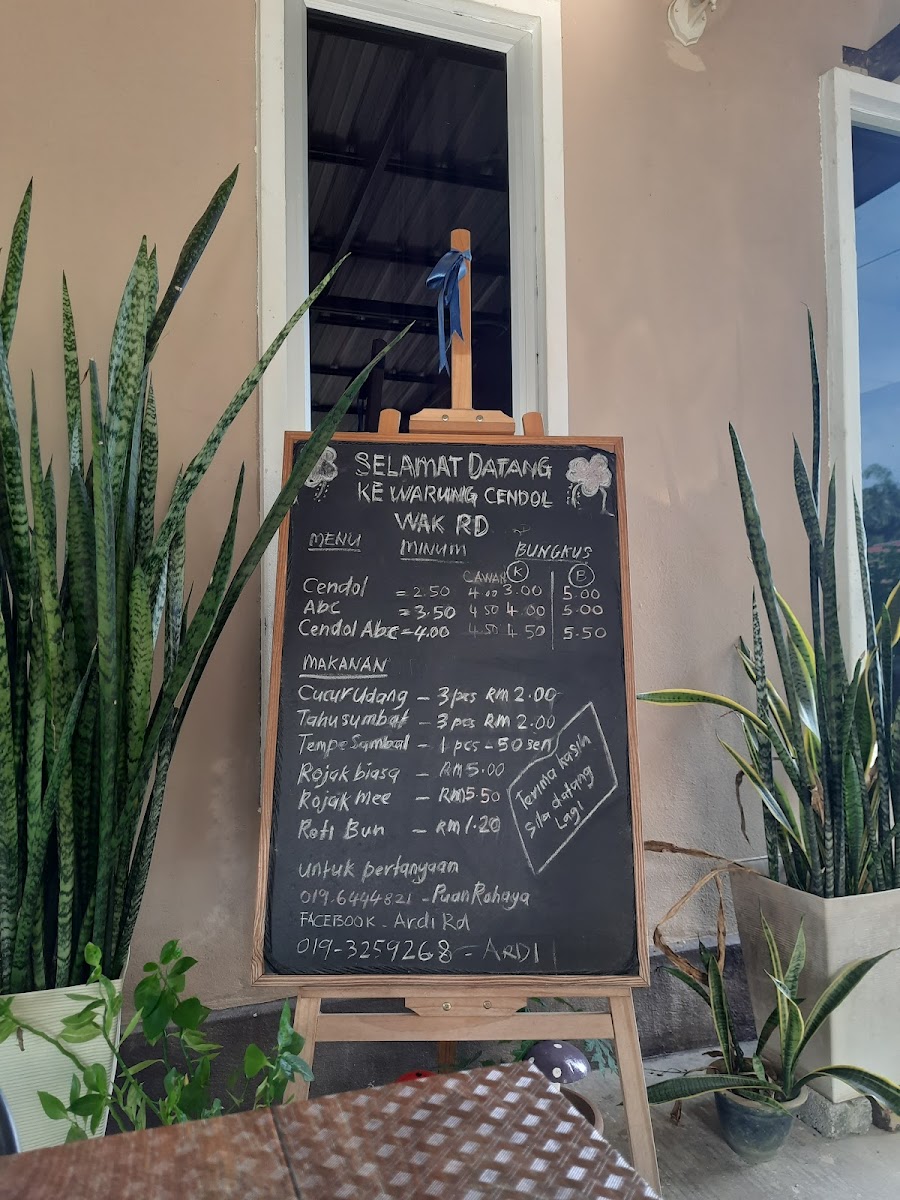 SELAMAT DATANG
KE WARUNG CENDOL
WAK RD
MENU MINUM BUNGKUS
CAWAN K B
Cendol = 2.50 4.00 3.00 5.00
Abc = 3.50 4.50 4.00 5.00
Cendol Abc = 4.00 4.50 4.50 5.50
MAKANAN
Cucur Udang - 3 pcs RM 2.00
Tahu sumbat - 3 pcs RM 2.00
Tempe Sambal - 1 pcs - 50 sen
Rojak biasa - RM 5.00
Rojak Mee - RM 5.50
Roti Bun - RM 1.20
Terima kasih
Sila datang
Lagi
untuk pertanyaan
019-6444821 - Puan Rahaya
FACEBOOK - Ardi Rd
019-3259268 - ARDI